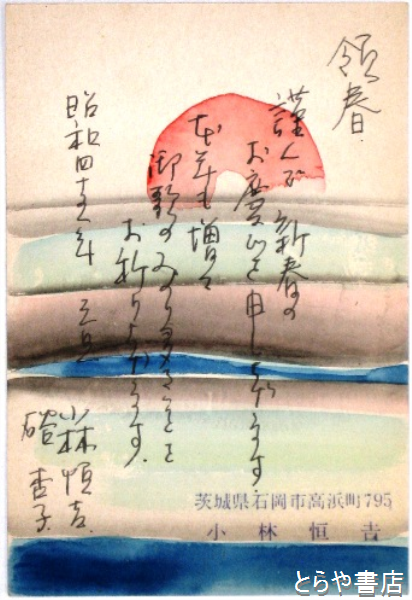 頌春
謹んで新春の
お慶びを申し上げます
本年も増々
御歌のみのり多きことを
お祈り申し上げます。
昭和四十五年 元旦
小林恒吉
杏子
茨城県石岡市高浜町795
小林恒吉
とらや書店